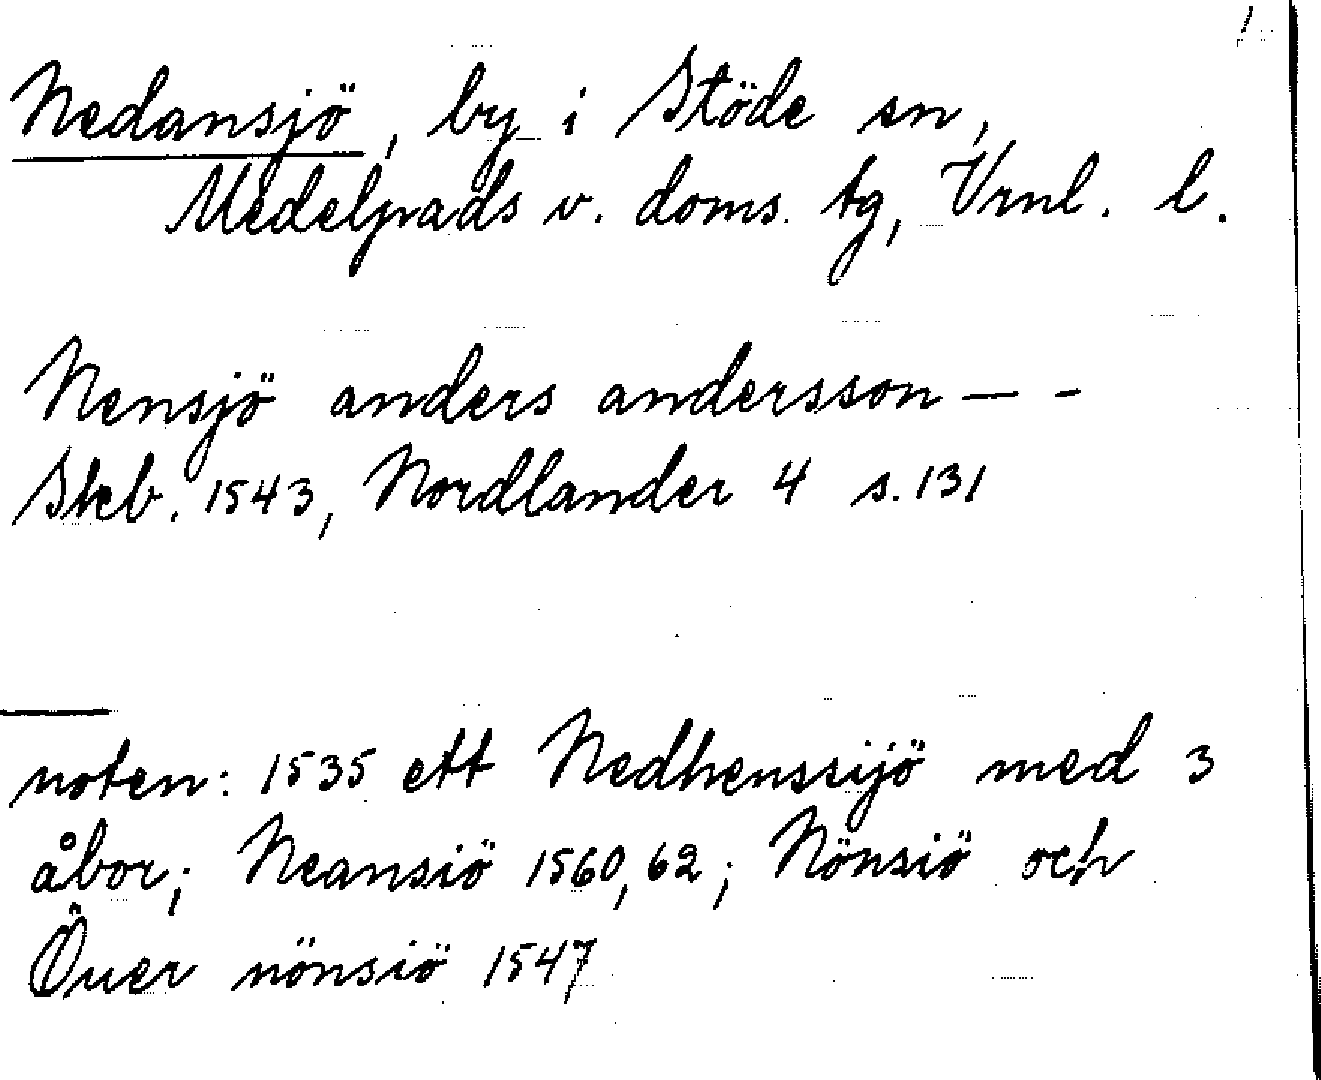 1
Nedansjö, by i Stöde sn,
Medelpads v. doms. tg, Vrnl. l.
Nensjö anders andersson — -
Skb. 1543, Nordlander 4 s. 131
noten: 1535 ett Nedhenssijö med 3
åbor; Neansiö 1560, 62; Nönsiö och
Öuer nönsiö 1547